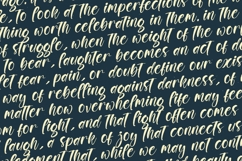 age, to look at the imperfections
thing worth celebrating in them, in the
of struggle, when the weight of the wor
to bear, laughter becomes an act of de
fear, pain, or doubt define our exis
way of rebelling against darkness, of
matter how overwhelming life may fee
for light, and that light often comes
augh, a spark of joy that connects us
ement that, while we may not cont